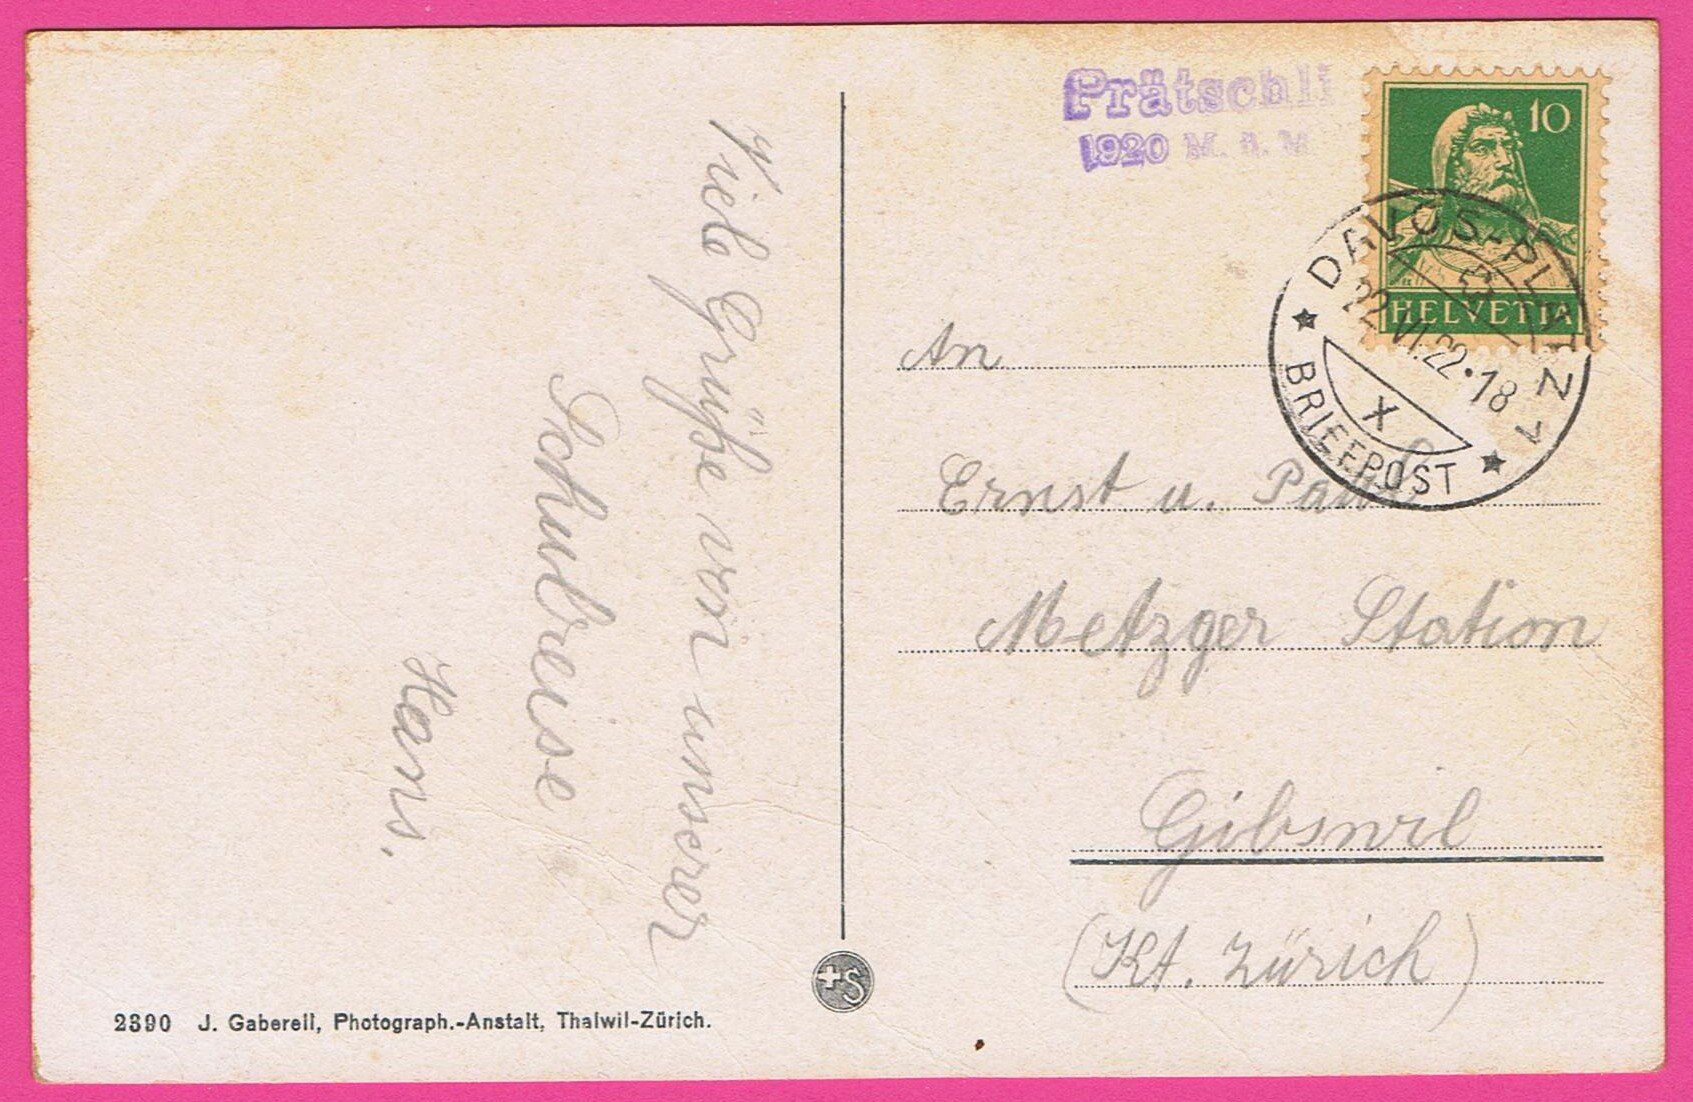 Viele Grüße von unserer
Schulreise
Hans.
Prätschli
1920 M. ü. M
10
HELVETIA
DAVOS-PLATZ 1
22.VI.22.18
X
BRIEFPOST
An
Ernst u. Paul
Metzger Station
Gibswil
(Kt. Zürich)
+S
2390 J. Gaberell, Photograph.-Anstalt, Thalwil-Zürich.